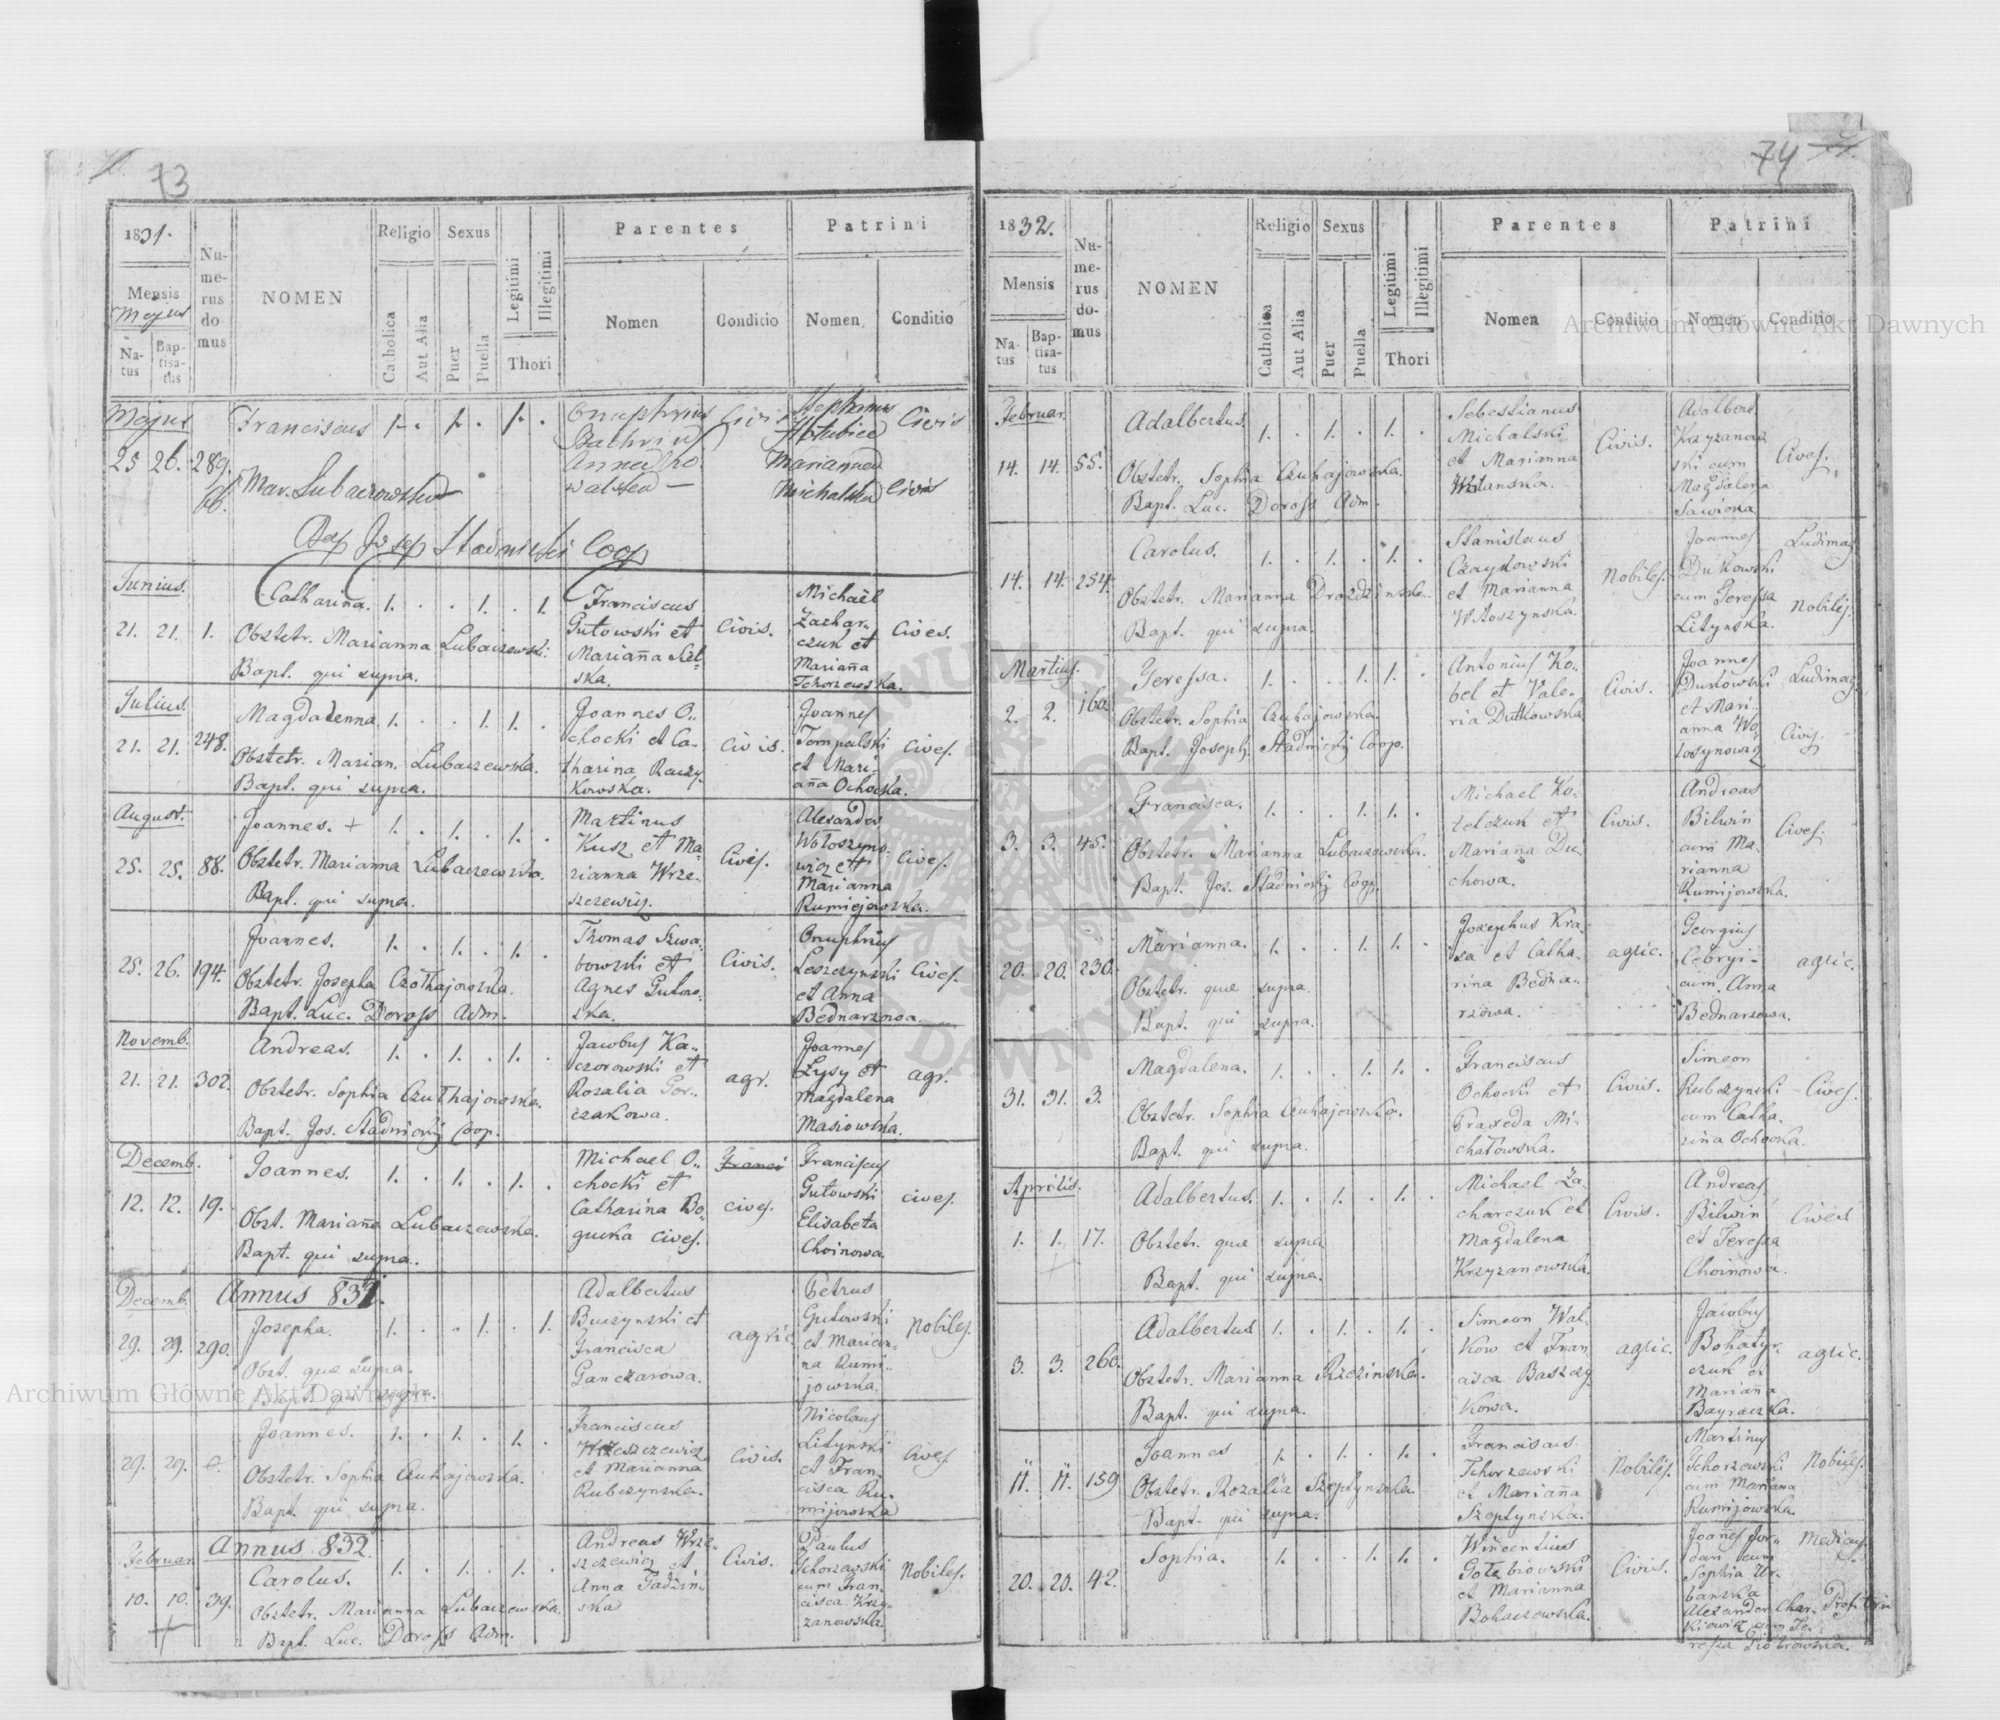 73
1831.
Mensis
Majus
Natus
Baptisatus
Numerus domus
NOMEN
Religio
Catholica
Aut Alia
Sexus
Puer
Puella
Legitimi
Illegitimi
Thori
Parentes
Nomen
Conditio
Patrini
Nomen
Conditio
Majus
25 26. 289.
Franciscus 1. . 1. . 1. .
Mar. Lubaczowska
Onuphrius
Anna Ko-
walska
Civis
Stephanus
Marianna
Michalska
Civis
Civis
Bap Josep Stadnicki Coop
Junius.
21. 21. 1.
Catharina. 1. . . 1. . 1.
Obstetr. Marianna Lubaczewsk:
Bapt. qui supra.
Franciscus
Gutowski et
Mariana
ska.
Civis.
Michaël
Zachar-
czuk et
Mariana
Tchorzewska.
Cives.
Julius.
21. 21. 248.
Magdalenna 1. . . 1. 1. .
Obstetr. Marian. Lubaczewska.
Bapt. qui supra.
Joannes O-
chocki et Ca-
tharina Raczy-
kowska.
Civis.
Joannes
Tempalski
et Mari-
aña Ochocka.
Cives.
August.
25. 25. 88.
Joannes. + 1. . 1. . 1. .
Obstetr. Marianna Lubaczewska.
Bapt. qui supra.
Martinus
Kusz et Ma-
rianna Wrze-
szczewicz.
Cives.
Alexander
Wołoszyno-
wicz et
Marianna
Rumiejowska.
Cives.
25. 26. 194.
Joannes. 1. . 1. . 1. .
Obstetr. Josepha Czołhajowska.
Bapt. Luc. Doross Adm.
Thomas Szwa-
bowski et
Agnes Gutow-
ska.
Civis.
Onuphrius
Leszczynski
et Anna
Bednarzowa.
Cives.
Novemb.
21. 21. 302.
Andreas. 1. . 1. . 1. .
Obstetr. Sophia Czułhajowska.
Bapt. Jos. Stadnicki Coop.
Jacobus Ka-
czorowski et
Rozalia Gor-
czakowa.
agr.
Joannes
Łysy et
Magdalena
Masiowska.
agr.
Decemb.
12. 12. 19.
Joannes. 1. . 1. . 1. .
Obst. Mariaña Lubaczewska.
Bapt. qui supra.
Michael O-
chocki et
Catharina Bo-
gucka cives.
Franci
cives.
Franciscus
Gutowski
Elisabeta
Choinowa.
cives.
Decemb. Annus 831.
29. 29. 290.
Josepha. 1. . . 1. . 1.
Obst. quæ supra.
Bapt. qui supra.
Adalbertus
Buczynski et
Francisca
Ganczarowa.
agric.
Petrus
Gutowski
et Marian-
na Rumi-
jowska.
Nobiles.
29. 29.
Joannes. 1. . 1. . 1. .
Obstetr. Sophia Czuhajowska.
Bapt. qui supra.
Franciscus
Wrzeszczewicz
et Marianna
Rubczynska.
Civis.
Nicolaus
Litynski
et Fran-
cisca Ru-
mijowska
Cives.
Februar. Annus 832.
10. 10. 39.
Carolus. 1. . 1. . 1. .
Obstetr. Marianna Lubaczewska.
Bapt. Luc. Doross Adm.
Andreas Wrze-
szczewicz et
Anna
ska
Civis.
Paulus
Tchorzewski
cum Fran-
cisca Krzy-
zanowska.
Nobiles.
74
1832.
Mensis
Natus
Baptisatus
Numerus domus
NOMEN
Religio
Catholica
Aut Alia
Sexus
Puer
Puella
Legitimi
Illegitimi
Thori
Parentes
Nomen
Conditio
Patrini
Nomen
Conditio
Februar.
14. 14. 55.
Adalbertus 1. . 1. . 1. .
Obstetr. Sophia Czuhajowska.
Bapt. Luc. Doross Adm.
Sebestianus
Michalski
et Marianna
Civis.
Adalber.
Krzyzanow-
ski cum
Magdalena
Sawicka
Cives.
14. 14. 254.
Carolus. 1. . 1. . 1. .
Obstetr. Marianna Drozdzinska.
Bapt. qui supra.
Stanislaus
Czaykowski
et Marianna
Włoszynska.
Nobiles.
Joannes
Dukowski
cum Teressa
Litynska.
Ludimag.
Nobiles.
Martius.
2. 2. 160.
Teressa. 1. . . 1. 1. .
Obstetr. Sophia Czuhajowska.
Bapt. Joseph. Stadnicki Coop.
Antonius Ko-
bel et Vale-
ria Dutkowska
Civis.
Joannes
Dukowski
et Mari-
anna Wo-
łosynowicz
Ludimag.
Civis.
3. 3. 45.
Francisca. 1. . . 1. 1. .
Obstetr. Marianna Lubaczowska.
Bapt. Jos. Stadnicki Coop.
Michael Ko-
telczuk et
Mariana Du-
chowa.
Civis.
Andreas
Bilwin
cum Ma-
rianna
Rumijowska.
Cives.
20. 20. 230.
Marianna. 1. . . 1. 1. .
Obstetr. quæ supra.
Bapt. qui supra.
Josephus Kra-
sa et Catha-
rina Bedna-
rzowa.
agric.
Georgius
Cebryi-
cum Anna
Bednarzowa.
agric.
31. 31. 3.
Magdalena. 1. . . 1. 1. .
Obstetr. Sophia Czuhajowska.
Bapt. qui supra.
Franciscus
Ochocki et
Praxeda Mi-
chałowska.
Civis.
Simeon
Rubczynski
cum Catha-
riña Ochocka.
Cives.
Aprilis.
1. 1. 17.
Adalbertus. 1. . 1. . 1. .
Obstetr. quæ supra.
Bapt. qui supra.
Michael Za-
charczuk et
Magdalena
Krzyzanowska.
Civis.
Andreas
Bilwin
et Teressa
Choinowa.
Cives
3. 3. 260.
Adalbertus 1. . 1. . 1. .
Obstetr. Marianna Rzezinska.
Bapt. qui supra.
Simeon Wal-
kow et Fran-
cisca Baszczy-
kowa.
agric.
Jacobus
Bohatyr-
czuk et
Mariaña
Bayraczka.
agric.
11. 11. 159
Joannes 1. . 1. . 1. .
Obstetr. Rozalia Szeptynska.
Bapt. qui supra.
Franciscus
Tchorzewski
et Mariaña
Szeptynska.
Nobiles.
Martinus
Tchorzewski
cum Mariana
Rumijowska.
Nobiles.
20. 20. 42.
Sophia. 1. . . 1. 1. .
Wincentius
Gołębiowski
et Marianna
Bohaczewska.
Civis.
Joañes Jor-
dan cum
Sophia Ur-
banska
Alexander
Medicus.
ressa Piotrowska.
Archiwum Główne Akt Dawnych
Archiwum Główne Akt Dawnych